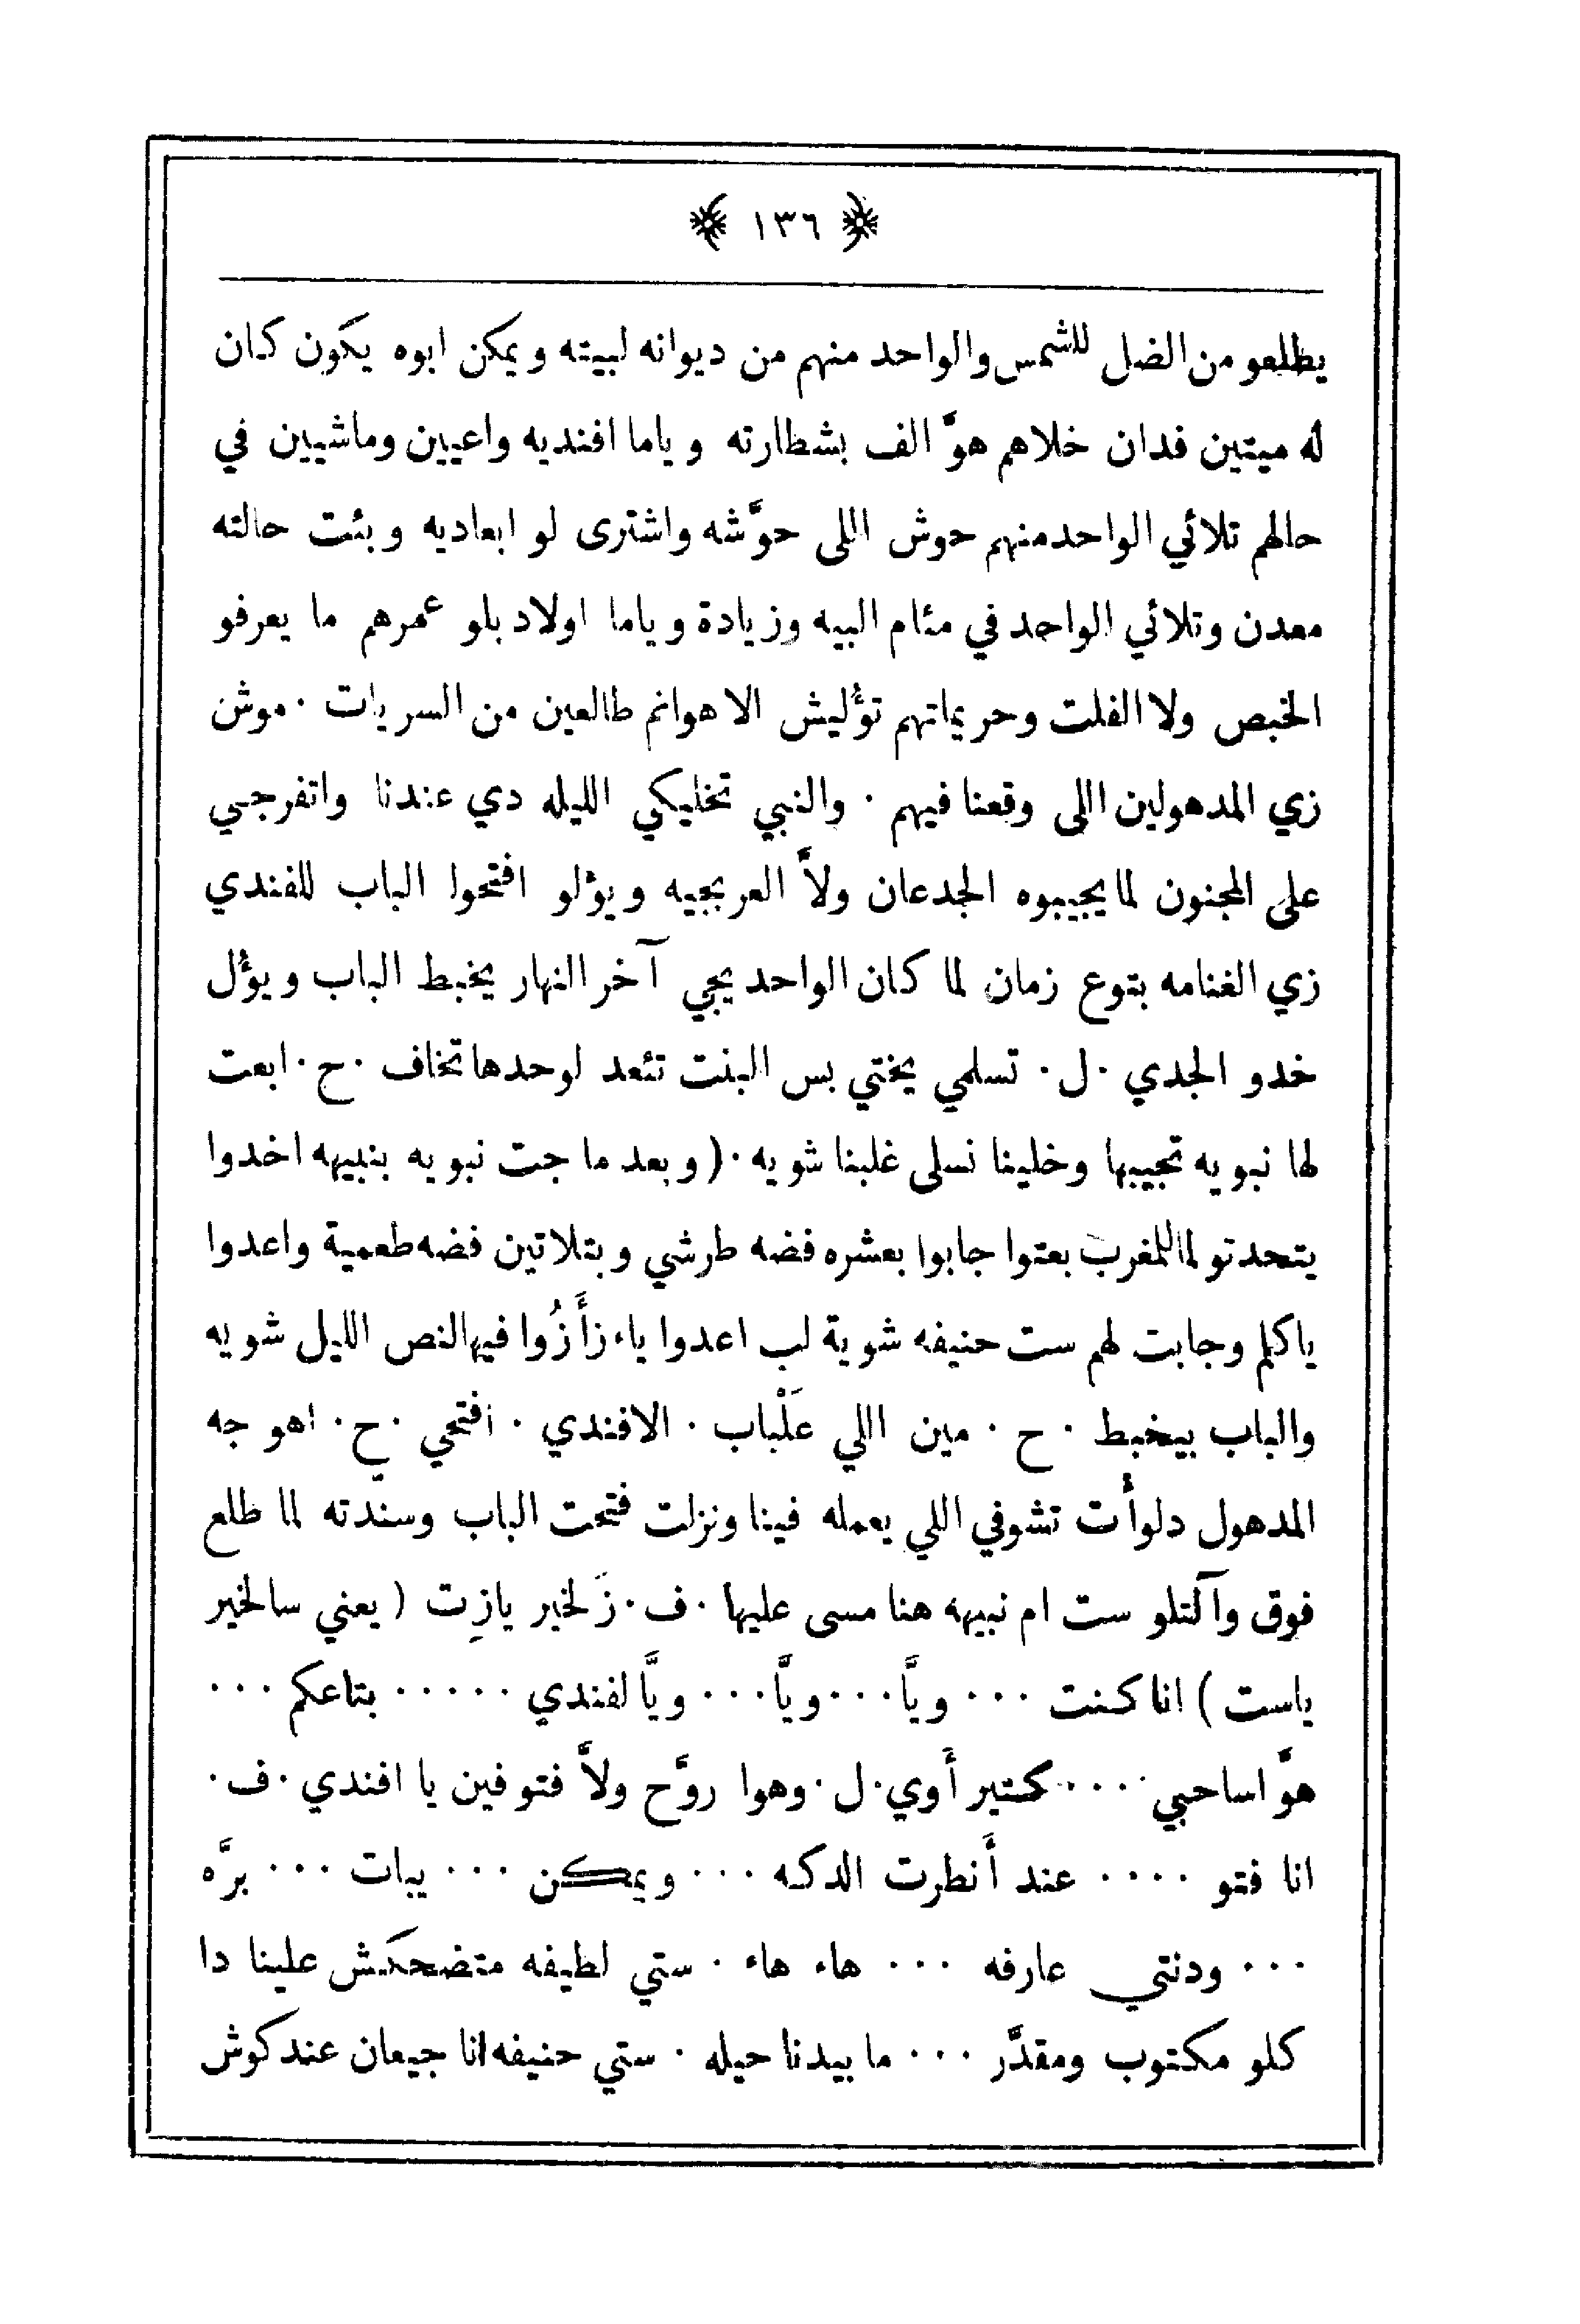 ﴿ ١٣٦ ﴾
يظلعو من الضل للشمس والواحد منهم من ديوانه لبيته ويمكن ابوه يكون كان
له ميتين فدان خلاهم هوَّ الف بشطارته وياما افنديه واعيين وماشيين في
حالهم تلائي الواحد منهم حوش اللى حوَّشه واشترى لو ابعاديه وبئت حالته
معدن وتلائي الواحد في مئام البيه وزيادة وياما اولاد بلو عمرهم ما يعرفو
الخبص ولا الفلت وحريماتهم تؤليش الا هوانم طالعين من السريات ٠ موش
زي المدهولين اللى وقعنا فيهم ٠ والنبي تخليكي الليله دي عندنا واتفرجي
على المجنون لما يجيبوه الجدعان ولاَّ العربجيه ويؤلو افتحوا الباب للفندي
زي الغنامه بتوع زمان لما كان الواحد يجي آخر النهار يخبط الباب ويؤل
خدو الجدي ٠ ل ٠ تسلمي يختي بس البنت تئعد لوحدها تخاف ٠ ح ٠ ابعت
لها نبويه تجيبها وخلينا نسلى غلبنا شويه ٠ ( وبعد ما جت نبويه بنبيهه اخدوا
يتحدتو لما للمغرب بعتوا جابوا بعشره فضه طرشي وبتلاتين فضه طعمية واعدوا
ياكلم وجابت لهم ست حنيفه شوية لب اعدوا ياء زأَزُوا فيها لنص الليل شويه
والباب بيخبط ٠ ح ٠ مين اللي عَلْباب ٠ الافندي ٠ افتحي ٠ ح ٠ اهو جه
المدهول دلوأت تشوفي اللي يعمله فينا ونزلت فتحت الباب وسندّته لما ظلع
فوق وآلتلو ست ام نبيهه هنا مسى عليها ٠ ف ٠ زَلخير يازِت ( يعني سالخير
ياست ) انا كنت ٠٠٠ ويَّا ٠٠٠ ويَّا ٠٠٠ ويَّا لفندي ٠٠٠٠٠ بتاعكم ٠٠٠
هوَّ اساحبي ٠٠٠٠ كمتير أَوي ٠ ل ٠ وهوا روَّح ولاَّ فتو فين يا افندي ٠ ف ٠
انا فتو ٠٠٠٠ عند أَنطرت الدكه ٠٠٠ ويمكن ٠٠٠ يبات ٠٠٠ برَّه
٠٠٠ ودنتي عارفه ٠٠٠ هاء هاء ٠ ستي لطيفه متضحكش علينا دا
كلو مكتوب ومقدَّر ٠٠٠ ما بيدنا حيله ٠ ستي حنيفه انا جيعان عندكوش